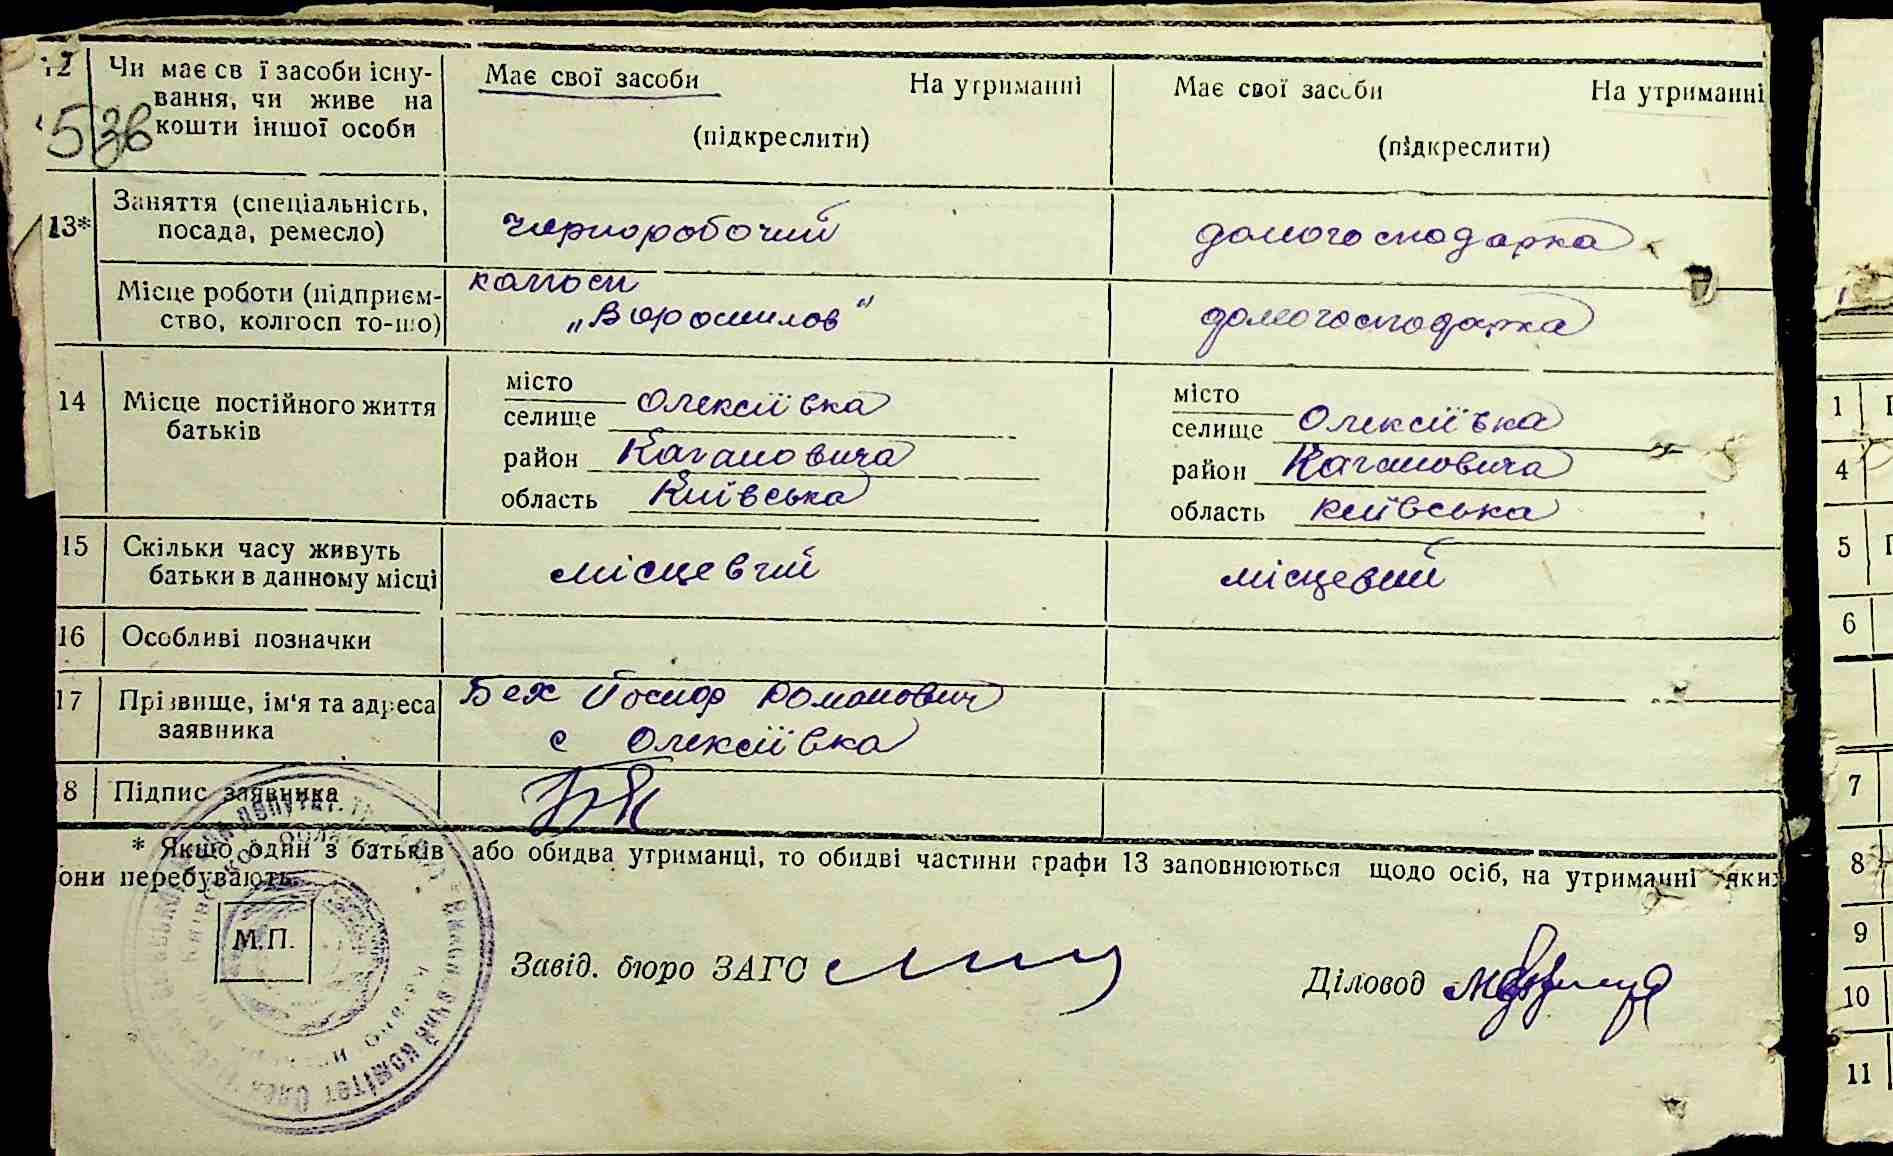 12 Чи має св ї засоби існу-
вання, чи живе на
кошти іншої особи
Має свої засоби На утриманні
(підкреслити)
Має свої засоби На утриманні
(підкреслити)
13* Заняття (спеціальність,
посада, ремесло)
чорноробочий
домогосподарка
Місце роботи (підприєм-
ство, колгосп то-що)
колгосп
„Ворошилов"
домогосподарка
14 Місце постійного життя
батьків
місто
селище Олексіївка
район Кагановича
область Київська
місто
селище Олексіївка
район Кагановича
область київська
15 Скільки часу живуть
батьки в данному місці
місцевий
місцевий
16 Особливі позначки
17 Прізвище, ім'я та адреса
заявника
Бех Йосип Романович
с Олексіївка
8 Підпис заявника
* Якщо один з батьків або обидва утриманці, то обидві частини графи 13 заповнюються щодо осіб, на утриманні яких
они перебувають.
М.П.
Завід. бюро ЗАГС
Діловод
1
4
5
6
7
8
9
10
11